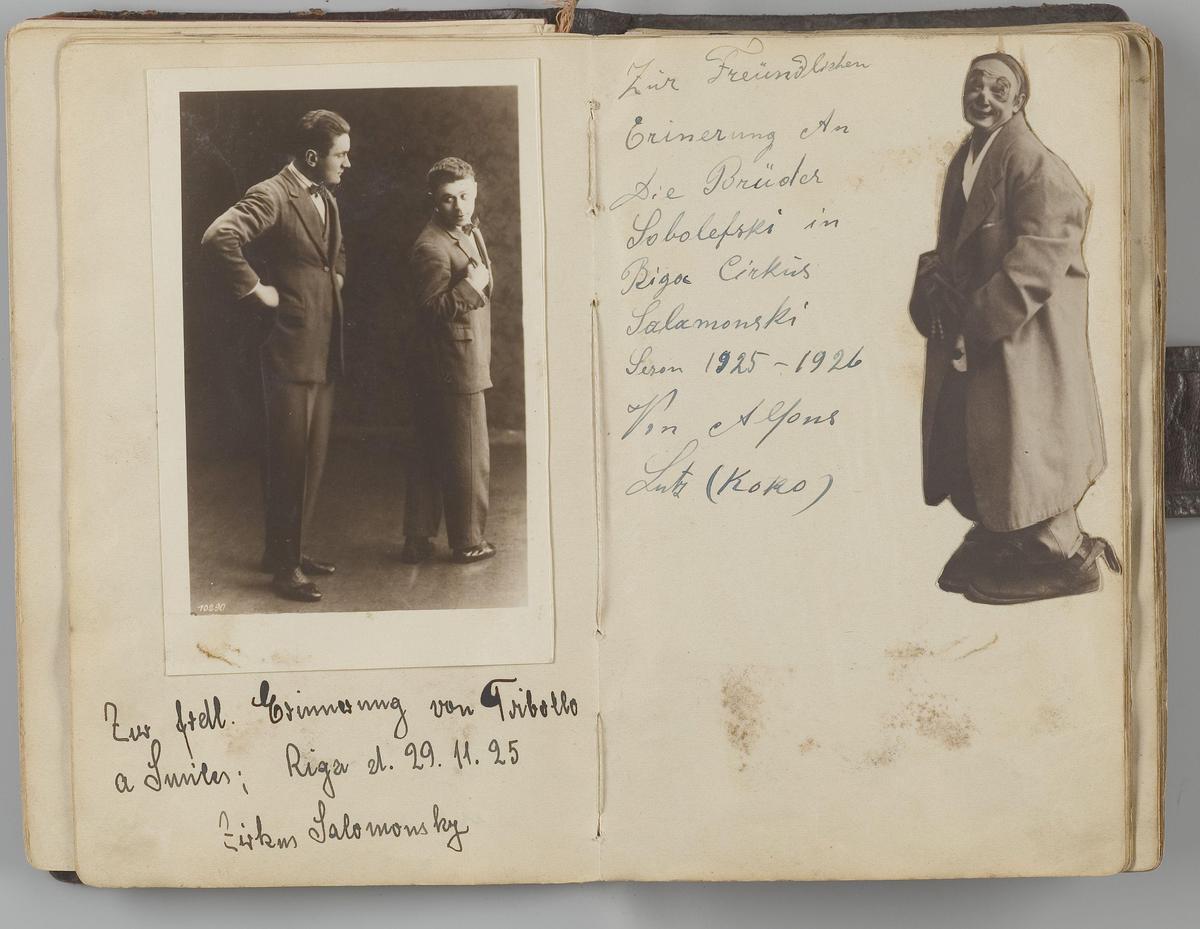 10290
Zur frdl. Erinnerung von Tribollo
a Smiles; Riga d. 29. 11. 25
Zirkus Salomonsky
Zür Freündlichen
Erinerung An
Die Brüder
Sobolefski in
Riga Cirküs
Salamonski
Seson 1925 - 1926
Von Alfons
Lutz (Koko)